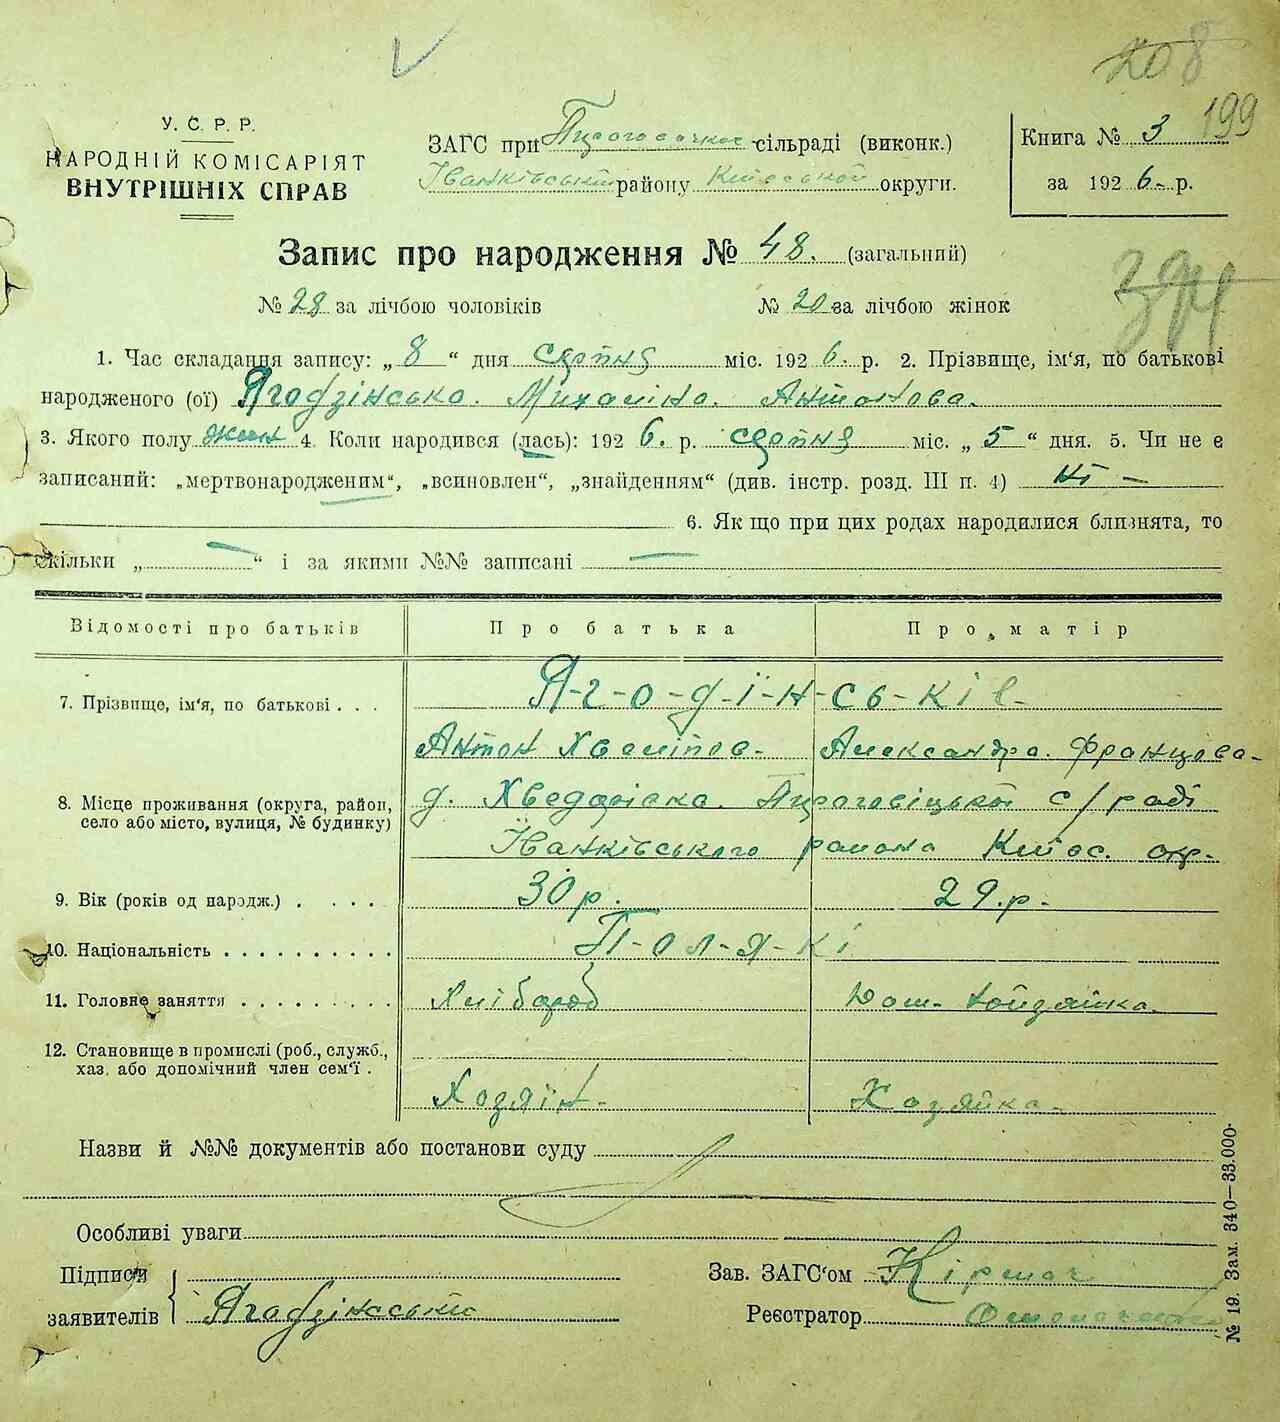 208
199
У. С. Р. Р.
НАРОДНІЙ КОМІСАРІЯТ
ВНУТРІШНІХ СПРАВ
ЗАГС при сільраді (виконк.)
Іванківськім району Київської округи.
Книга № 3
за 1926 р.
Запис про народження № 48. (загальний)
№ 28 за лічбою чоловіків № 20 за лічбою жінок
394
1. Час складання запису: „8“ дня серпня міс. 1926. р. 2. Прізвище, ім'я, по батькові
народженого (ої) Ягодзінська. Михаліна. Антонова.
3. Якого полу жін 4. Коли народився (лась): 1926. р. серпня міс. „5“ дня. 5. Чи не є
записаний: „мертвонародженим“, „всиновлен“, „знайденням“ (див. інстр. розд. III п. 4) ні —
6. Як що при цих родах народилися близнята, то
скільки „ “ і за якими №№ записані
Відомості про батьків Про батька Про матір
7. Прізвище, ім'я, по батькові . . . Я-г-о-д-ї-н-сь-к-і-
Антон Александра. Францова-
8. Місце проживання (округа, район,
село або місто, вулиця, № будинку)
д. с/раді
Іванківського района Київс. окр-
9. Вік (років од народж.) . . . . 30 р. 29. р-
10. Національність . . . . . . . . . . П-о-л-я-кі
11. Головне заняття . . . . . . . . . Хлібароб
12. Становище в промислі (роб., служб.,
хаз. або допомічний член сем'ї .
Хозяїн- Хозяйка-
Назви й №№ документів або постанови суду
Особливі уваги
Підписи
заявителів Ягодзінський
Зав. ЗАГС'ом
Реєстратор
№ 19. Зам. 340—33.000-